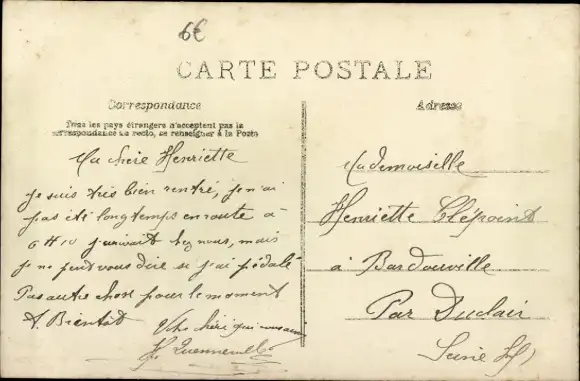 6€
CARTE POSTALE
Correspondance
Tous les pays étrangers n'acceptent pas la
correspondance au recto, se renseigner à la Poste
Adresse
Ma chère Henriette
je suis très bien rentré, je n'ai
pas été longtemps en route à
6 H 10 j'arrivait chez nous, mais
je ne peut vous dire si j'ai pédalé
Pas autre chose pour le moment
A Bientôt
Votre chéri qui vous aime
Mademoiselle
Henriette Clépoint
à Bardouville
Par Duclair
Seine Inf